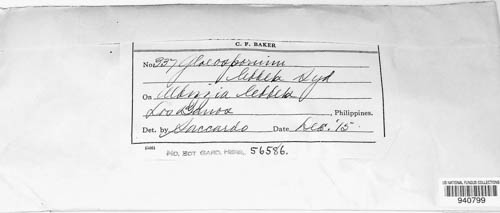 C. F. BAKER
No. 337 Gloeosporium
lebbek Syd
On Albizzia lebbek
Los Banos, Philippines.
Det. by Saccardo Date Dec. '15
MO. BOT. GARD. HERB. 56586.
US NATIONAL FUNGUS COLLECTIONS
940799